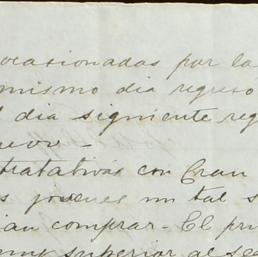 ocasionadas por la
mismo dia regresó
dia siguiente reg
nuevo -
tratativas con Gran
s jovenes un tal s
ian comprar - El pri
muy superior al se